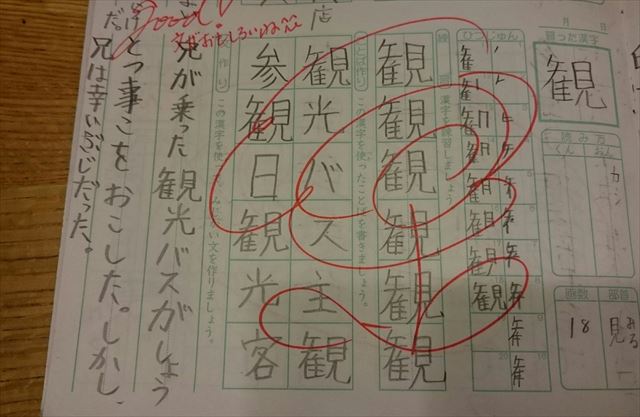 習った漢字
月 日
観
読み方
くん
おん
カン
画数
部首
18
見
みる
ひつじゅん
練習
漢字を練習しましょう。
観
観
観
観
観
観
ことば作り
この漢字を使ったことばを書きましょう。
観光バス
主観
参観日
観光客
文作り
この漢字を使って、みじかい文を作りましょう。
兄が乗った観光バスがしょう
とつ事こをおこした。しかし、
兄は幸いぶじだった。
Good!
文がおもしろいね
店